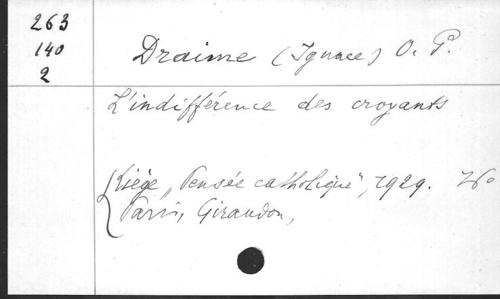 263
140
2
Draime (Ignace) O. P.
L'indifférence des croyants
Liége „Pensée catholique", 1929.
Paris, Giraudon,